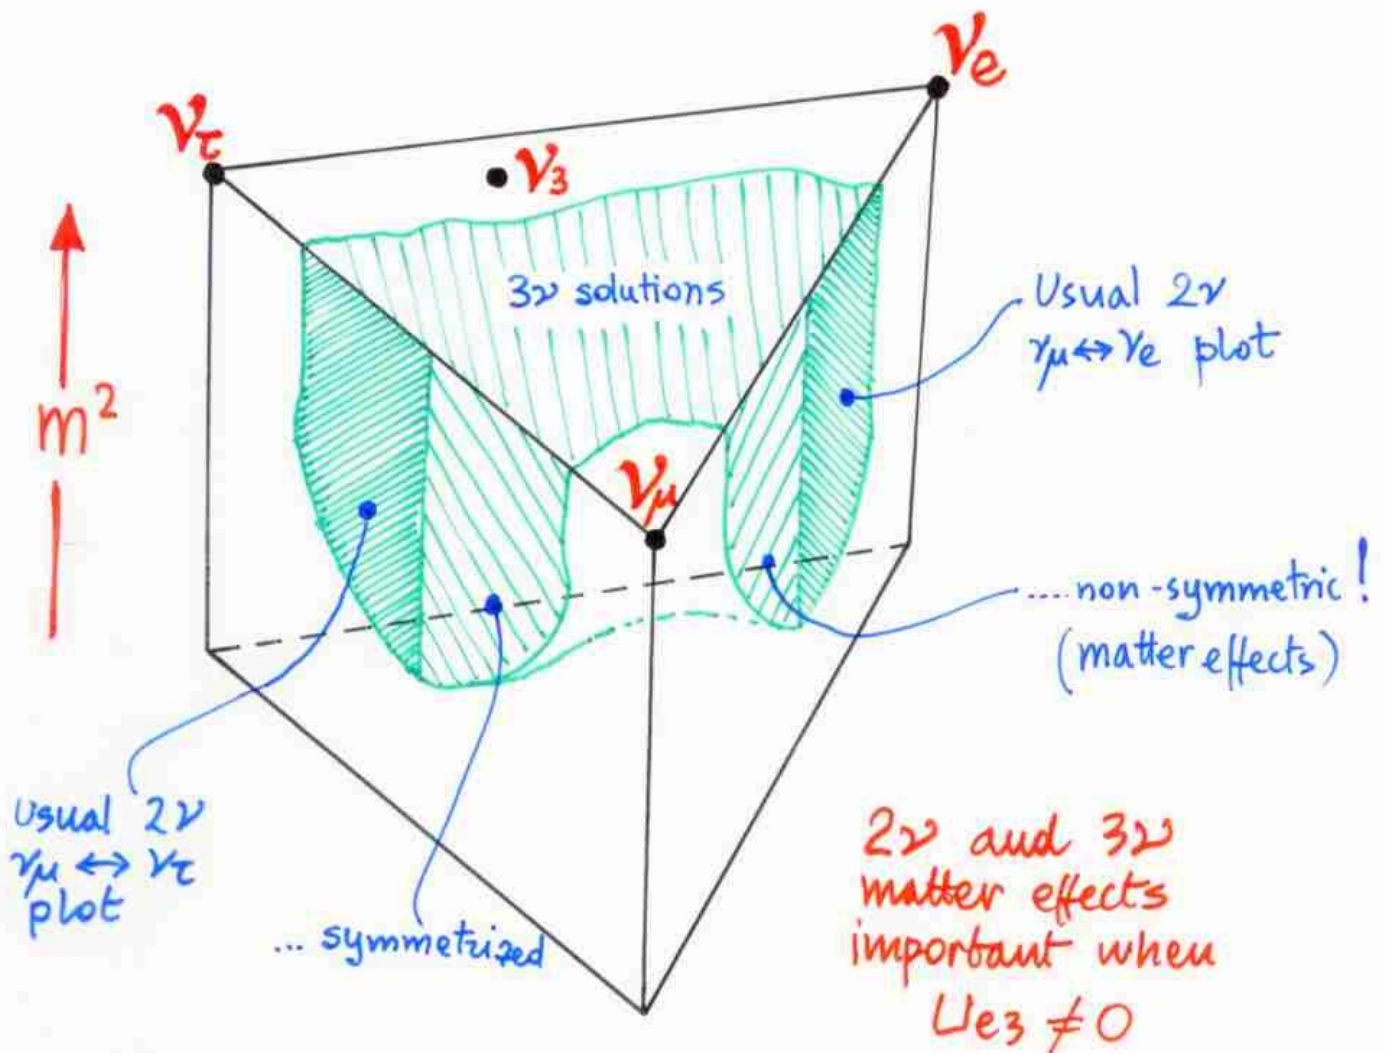 νe
ντ
ν3
3ν solutions
Usual 2ν
νμ↔νe plot
m²
νμ
.... non-symmetric!
(matter effects)
Usual 2ν
νμ ↔ ντ
plot
... symmetrized
2ν and 3ν
matter effects
important when
Ue3 ≠ 0